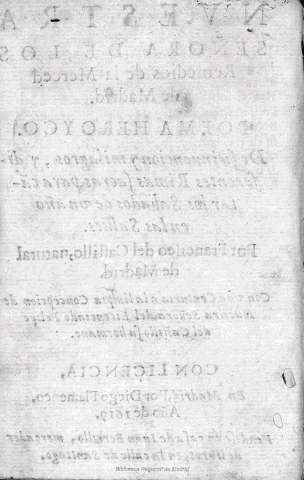 NVESTRA
SEÑORA DE LOS
Remedios de la Merced
de Madrid.
POEMA HEROYCO.
De su inuencion y milagros, y di-
ferentes Rimas sacras para cã-
tar los Sabados de vn año
en las Salues.
Por Francisco del Castillo, natural
de Madrid.
Con vna Centuria a la limpia Concepcion de
nuestra Señora del Licenciado Felipe
del Castillo su hermano.
CON LICENCIA,
En Madrid, Por Diego Flamenco,
Año de 1619.
Vendese en casa de Iuan Berrillo, mercader
de libros, en la calle de Santiago.
Biblioteca Regional de Madrid